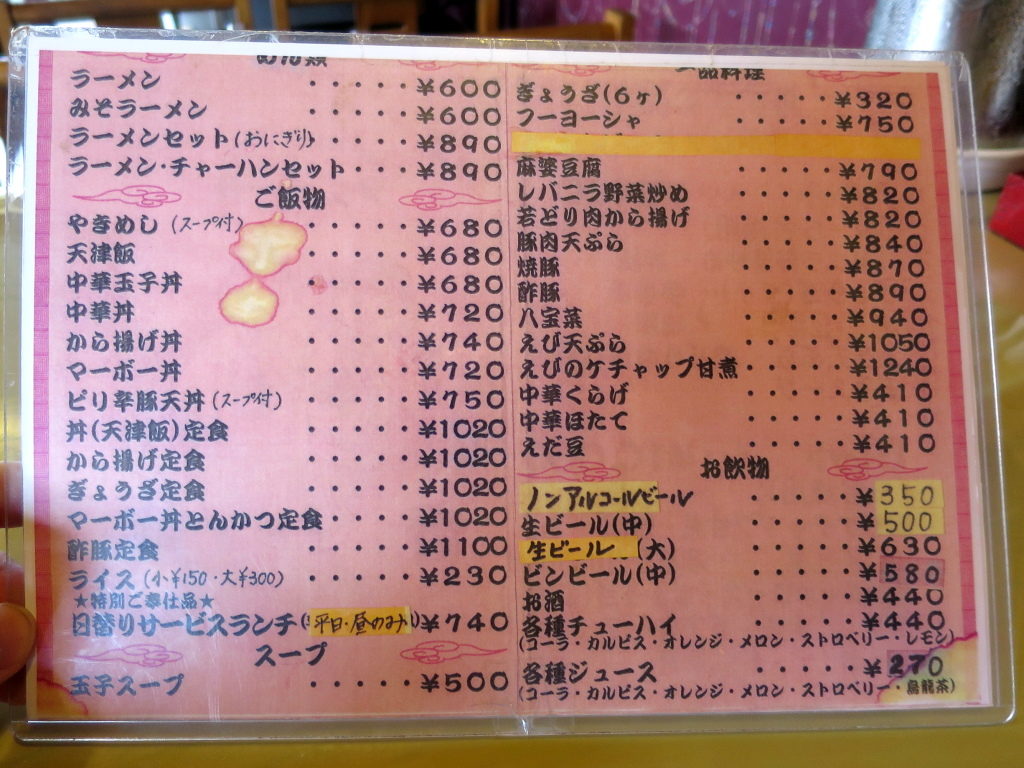 めん類
ラーメン ・・・・・ ¥600
みそラーメン ・・・・・ ¥600
ラーメンセット(おにぎり) ・・・・ ¥890
ラーメン・チャーハンセット ・・・ ¥890
ご飯物
やきめし (スープ付) ・・・・・ ¥680
天津飯 ・・・・・ ¥680
中華玉子丼 ・・・・・ ¥680
中華丼 ・・・・・ ¥720
から揚げ丼 ・・・・・ ¥740
マーボー丼 ・・・・・ ¥720
ピリ辛豚天丼 (スープ付) ・・・・・ ¥750
丼(天津飯)定食 ・・・・・ ¥1020
から揚げ定食 ・・・・・ ¥1020
ぎょうざ定食 ・・・・・ ¥1020
マーボー丼とんかつ定食 ・・・・ ¥1020
酢豚定食 ・・・・・ ¥1100
ライス (小¥150・大¥300) ・・・・・ ¥230
★特別ご奉仕品★
日替りサービスランチ(平日・昼のみ) ¥740
スープ
玉子スープ ・・・・・ ¥500
一品料理
ぎょうざ(6ヶ) ・・・・・ ¥320
フーヨーシャ ・・・・・ ¥750
麻婆豆腐 ・・・・・ ¥790
レバニラ野菜炒め ・・・・・ ¥820
若どり肉から揚げ ・・・・・ ¥820
豚肉天ぷら ・・・・・ ¥840
焼豚 ・・・・・ ¥870
酢豚 ・・・・・ ¥890
八宝菜 ・・・・・ ¥940
えび天ぷら ・・・・・ ¥1050
えびのケチャップ甘煮 ・・・・・ ¥1240
中華くらげ ・・・・・ ¥410
中華ほたて ・・・・・ ¥410
えだ豆 ・・・・・ ¥410
お飲物
ノンアルコールビール ・・・・・ ¥350
生ビール(中) ・・・・・ ¥500
生ビール(大) ・・・・・ ¥630
ビンビール(中) ・・・・・ ¥580
お酒 ・・・・・ ¥440
各種チューハイ ・・・・・ ¥440
(コーラ・カルピス・オレンジ・メロン・ストロベリー・レモン)
各種ジュース ・・・・・ ¥270
(コーラ・カルピス・オレンジ・メロン・ストロベリー・烏龍茶)